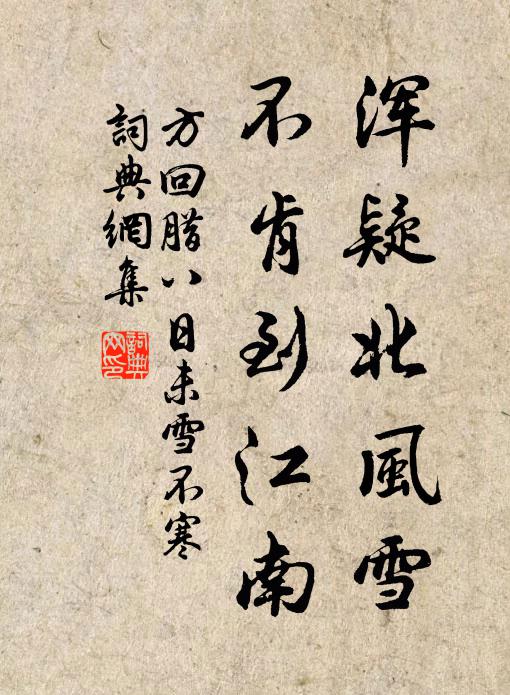 浑疑北風雪
不肯到江南
方回腊八日未雪不寒
詞典網集
詞典
网印